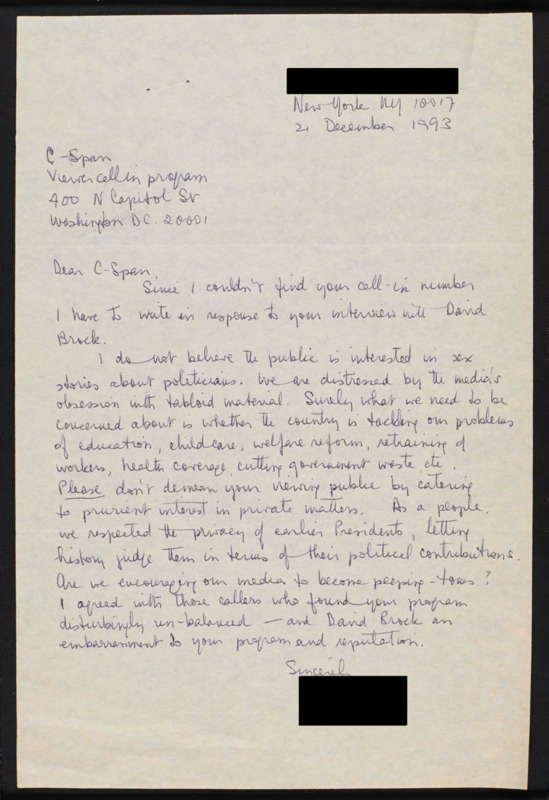 New York NY 10017
21 December 1993
C-Span
Viewer call in program
400 N Capitol St
Washington DC 20001
Dear C-Span,
Since I couldn't find your call-in number
I have to write in response to your interview with David
Brock.
I do not believe the public is interested in sex
stories about politicians. We are distressed by the media's
obsession with tabloid material. Surely what we need to be
concerned about is whether the country is tackling our problems
of education, childcare, welfare reform, retraining of
workers, health coverage, cutting government waste etc.
Please don't demean your viewing public by catering
to prurient interest in private matters. As a people,
we respected the privacy of earlier Presidents, letting
history judge them in terms of their political contributions.
Are we encouraging our media to become peeping-toms?
I agreed with those callers who found your program
disturbingly un-balanced — and David Brock an
embarrassment to your program and reputation.
Sincerely